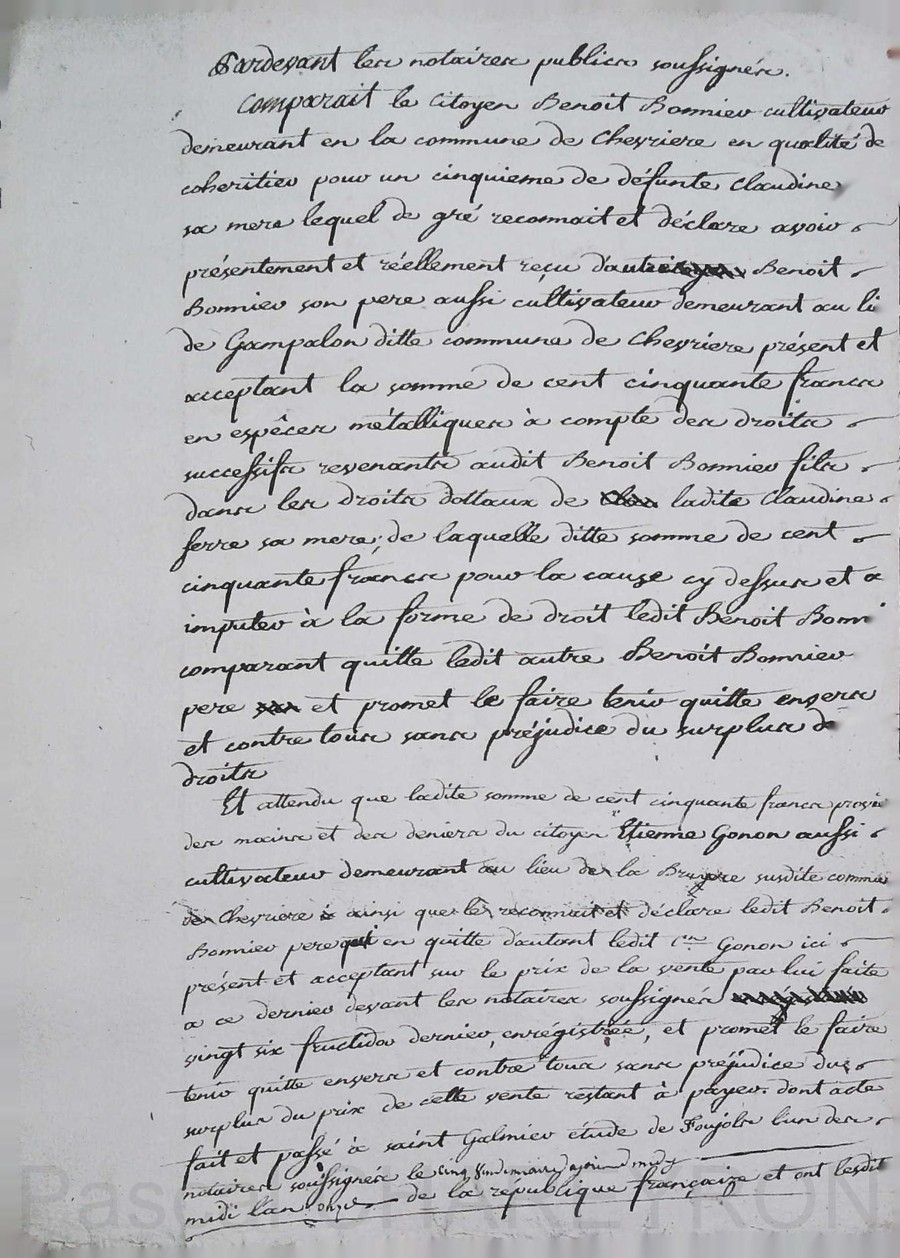 Pardevant les notaires publics soussignés.
Comparait le citoyen Benoit Bonnier cultivateur
demeurant en la commune de Chevriere en qualité de
coheritier pour un cinquieme de défunte Claudine
sa mere lequel de gré reconnait et déclare avoir
présentement et réellement reçu d'autre Benoit
Bonnier son pere aussi cultivateur demeurant au li
de Gampalon ditte commune de Chevriere présent et
acceptant la somme de cent cinquante francs
en espêces métalliques à compte des droits
successifs revenants audit Benoit Bonnier fils
dans les droits dottaux de ladite Claudine
ferre sa mere; de laquelle ditte somme de cent
cinquante francs pour la cause cy dessus et a
imputer à la forme de droit ledit Benoit Bonni
comparant quitte ledit autre Benoit Bonnier
pere et promet le faire tenir quitte envers
et contre tous sans préjudice du surplus de
droits
Et attendu que ladite somme de cent cinquante francs provie
des mains et des deniers du citoyen Etienne Gonon aussi
cultivateur demeurant au lieu de la Bruyere susdite commune
de Chevriere ainsi que le reconnait et déclare ledit Benoit
Bonnier pere qui en quitte d'autant ledit Cen Gonon ici
présent et acceptant sur le prix de la vente par lui faite
a ce dernier devant les notaires soussignés
vingt six fructidor dernier, enregistrée, et promet le faire
tenir quitte envers et contre tous sans préjudice du
surplus du prix de cette vente restant à payer. dont acte
fait et passé à saint Galmier étude de Foujols l'un des
notaires soussignés le cinq vendemiaire après midy
midi l'an onze de la république française et ont lesdit